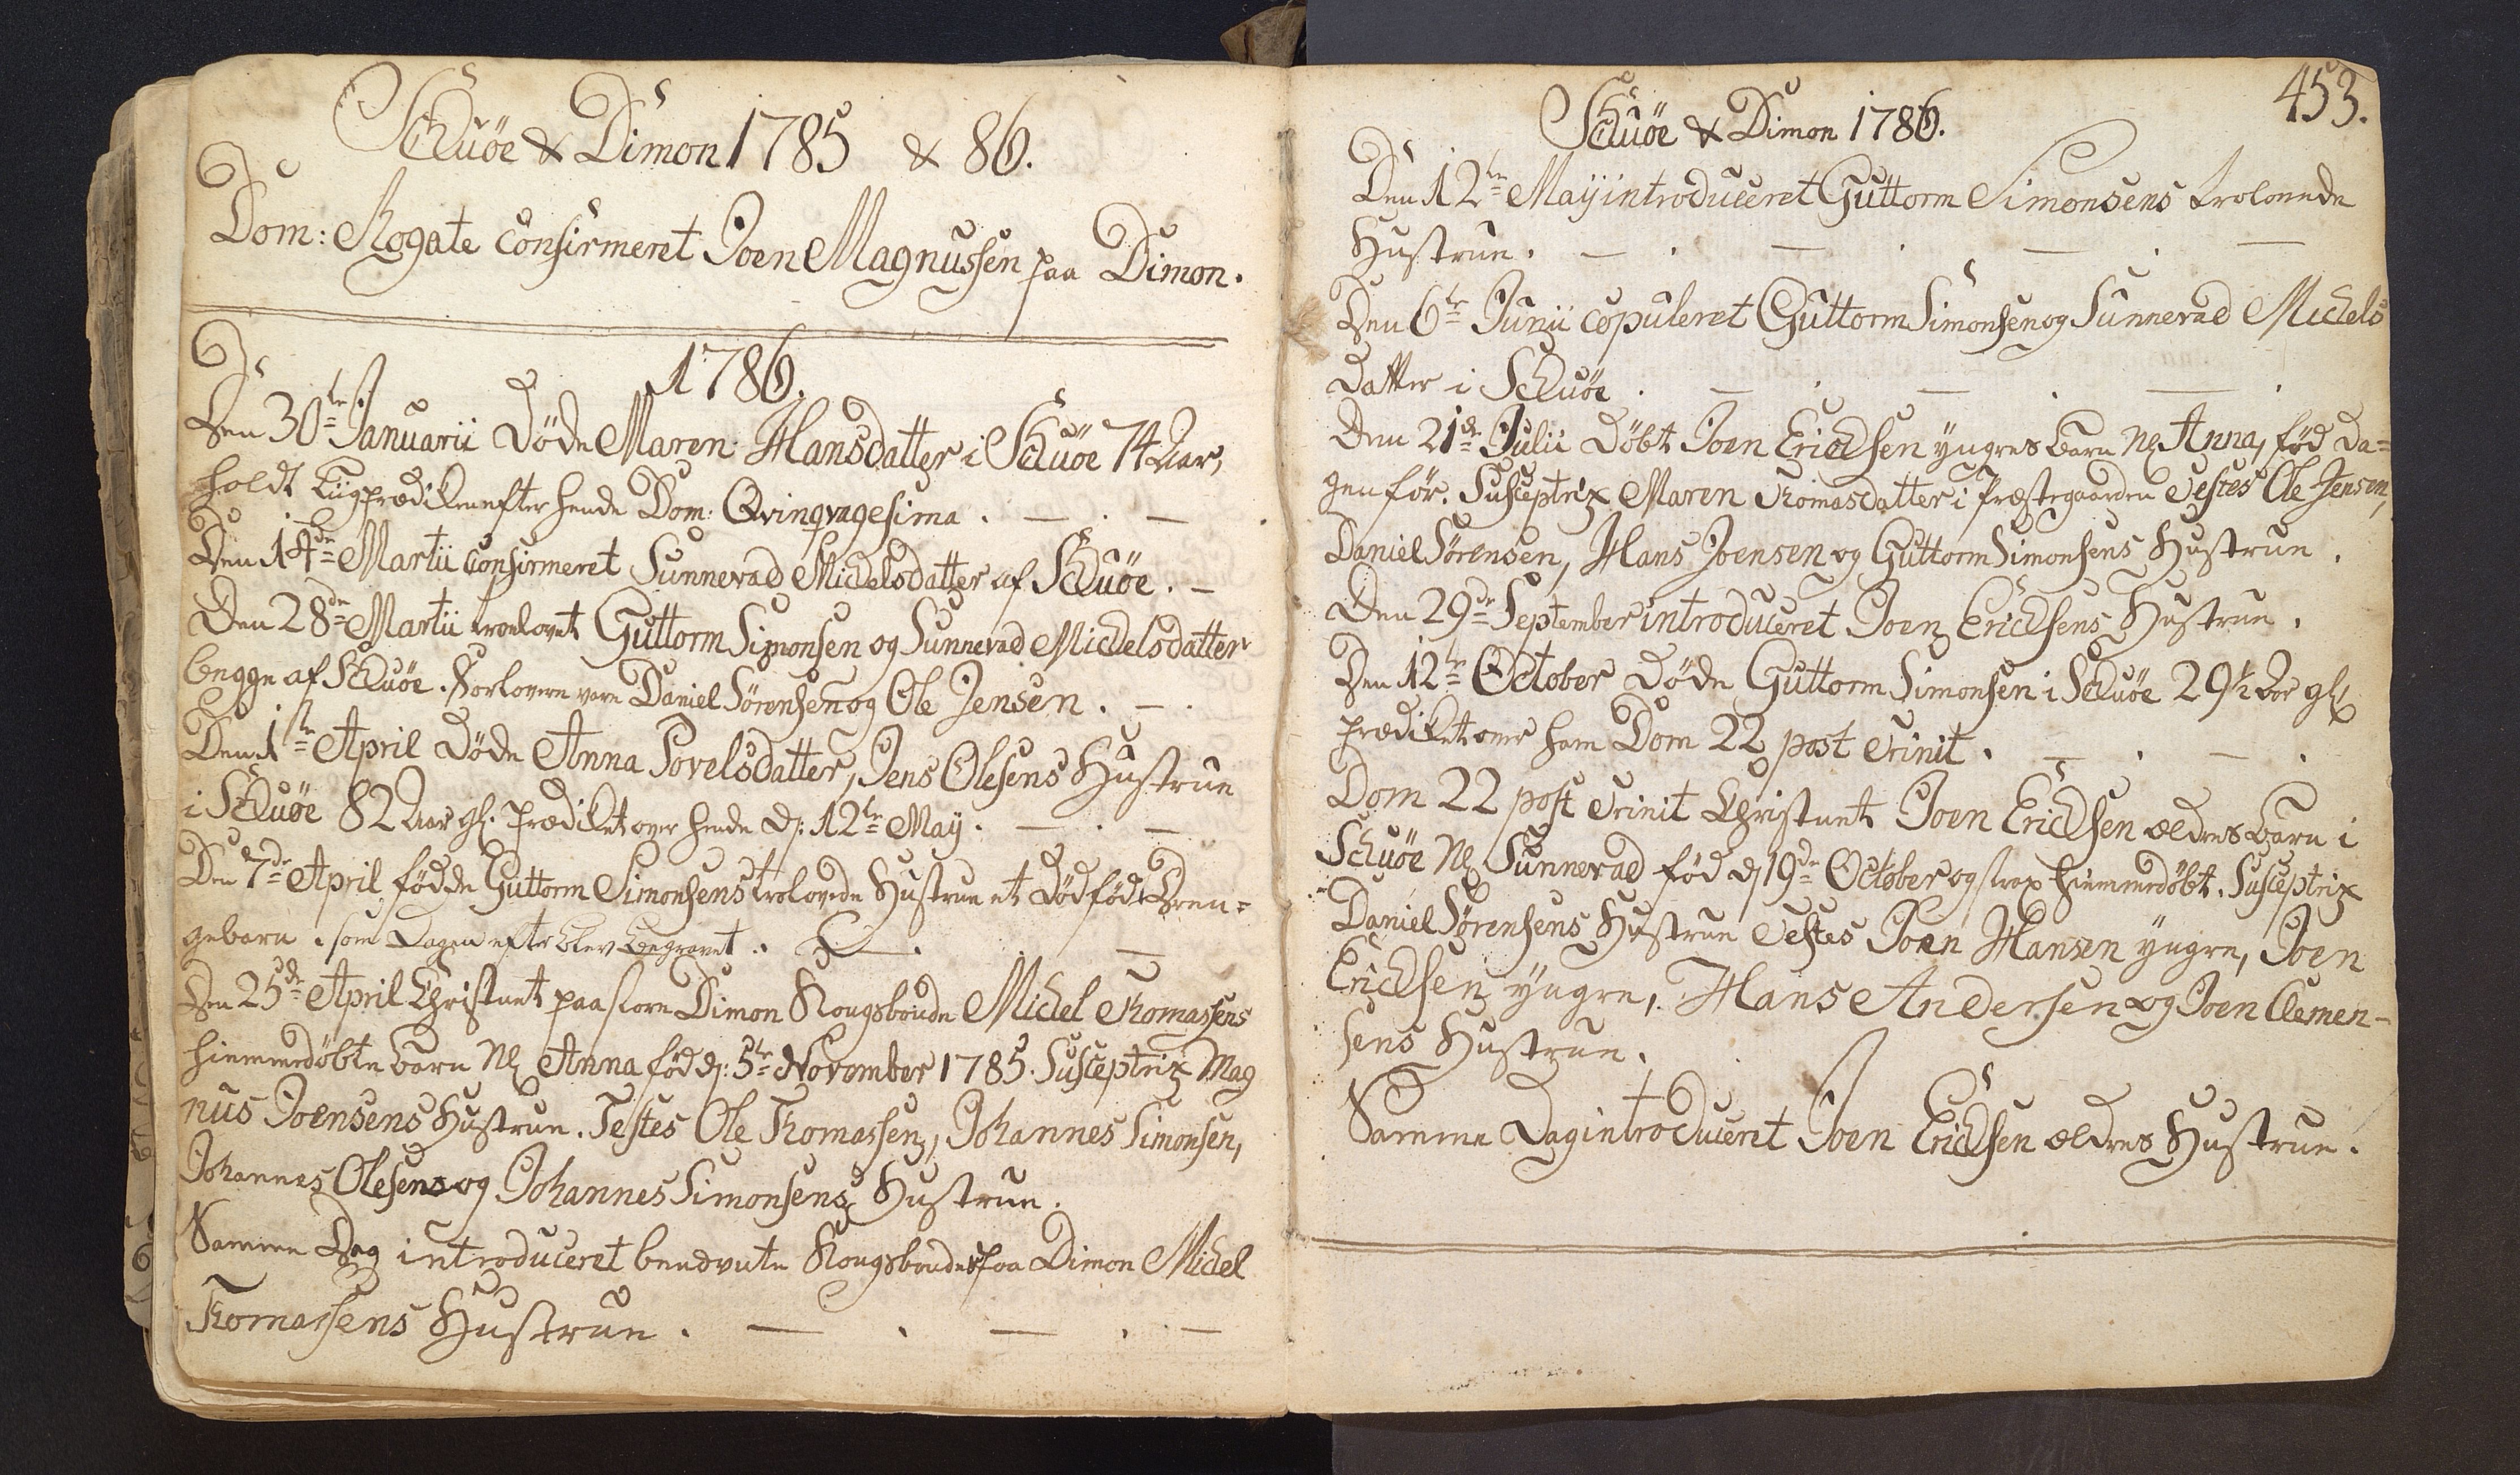 Schuöe & Dimon 1785 & 86.
Dom: Rogate Confirmeret Joen Magnussen paa Dimon.
1786.
Den 30te Januarii Döde Maren Hansdatter i Schuöe 74 Aar,
holdt Liigprædiken efter hende Dom: Qvinqvagesima.
Den 14de Martii Confirmeret Sunnevad Michelsdatter af Schuöe. –
Den 28de Martii troelovet Guttorm Simonsen og Sunnevad Michelsdatter
begge af Schuöe. Forlovere vare Daniel Sörensen og Ole Jensen. –
Den 1ste April Döde Anna Povelsdatter, Jens Olesens Hustrue
i Schuöe 82 Aar gl. Prædiket over hende d: 12te May. –
Den 7de April födde Guttorm Simonsens trolovede Hustrue et Dödfödt Dren=
gebarn. som Dagen efter blev begravet.
Den 25de April Christnet paa store Dimon Kongsbonde Michel Thomassens
hiemmedöbte Barn Nl Anna föd d: 5te November 1785. Susceptrix Mag
nus Joensens Hustrue. Testes Ole Thomassen, Johannes Simonsen,
Johannes Olesens og Johannes Simonsens Hustrue.
Samme Dag introduceret benævnte Kongsbondes paa Dimon Michel
Thomassens Hustrue. –
453.
Schuöe & Dimon 1786.
Den 12te May introduceret Guttorm Simonsens trolovede
Hustrue. –
Den 6te Junii copuleret Guttorm Simonsen og Sunnevad Michels
datter i Schuöe. –
Den 21de Julii Döbt Joen Erichsen yngres Barn Nl Anna, föd Da=
gen för. Susceptrix Maren Thomasdatter i Præstegaarden Testes Ole Jensen,
Daniel Sörensen, Hans Joensen og Guttorm Simonsens Hustrue.
Den 29de September introduceret Joen Erichsens Hustrue.
Den 12te October Döde Guttorm Simonsen i Schuöe 29½ Aar gl
Prædiket over ham Dom 22 post Trinit. –
Dom 22 post Trinit Christnet Joen Erichsen ældres Barn i
Schuöe Nl Sunnevad föd d 19de October og strax hiemmedöbt. Susceptrix
Daniel Sörensens Hustrue Testes Joen Hansen yngre, Joen
Erichsen yngre, Hans Andersen og Joen Clemen-
sens Hustrue.
Samme Dag introduceret Joen Erichsen ældres Hustrue.